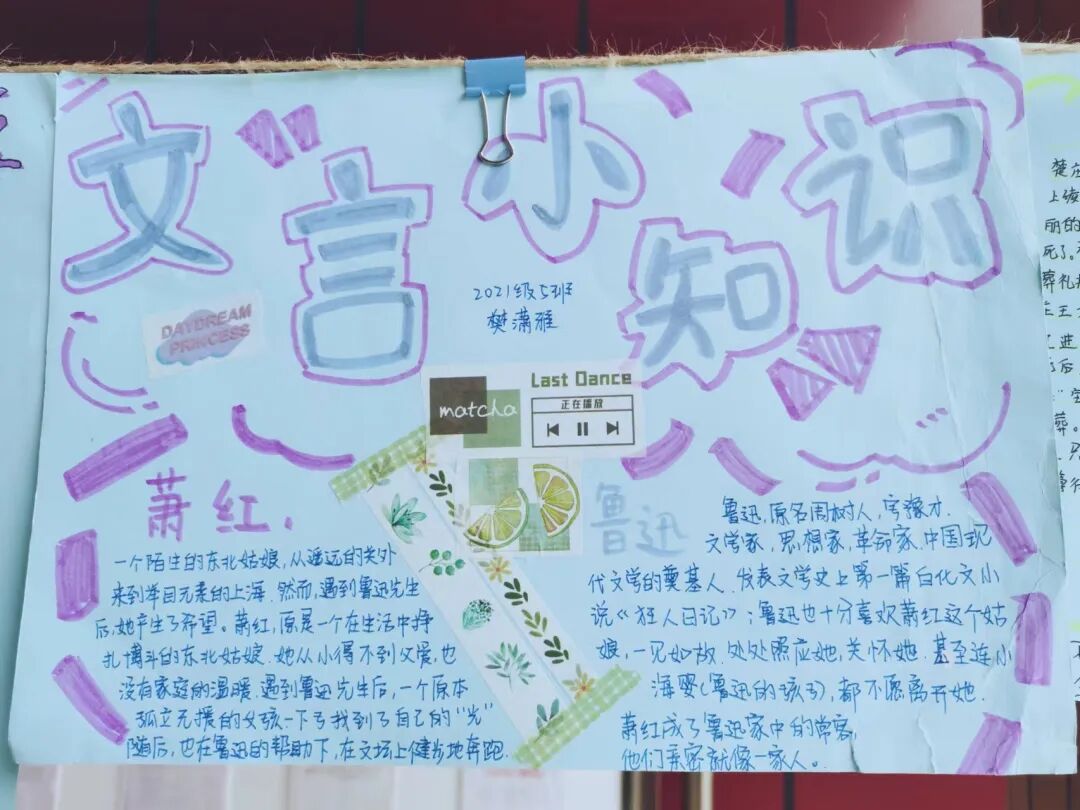 文言小知识
2021级5班
樊潇雅
DAYDREAM
PRINCESS
matcha
Last Dance
正在播放
萧红.
一个陌生的东北姑娘,从遥远的关外
来到举目无亲的上海.然而,遇到鲁迅先生
后,她产生了希望.萧红,原是一个在生活中挣
扎搏斗的东北姑娘.她从小得不到父爱,也
没有家庭的温暖.遇到鲁迅先生后,一个原本
孤立无援的女孩一下子找到了自己的“光”
随后,也在鲁迅的帮助下,在文坛上健步地奔跑.
鲁迅
鲁迅,原名周树人,字豫才.
文学家,思想家,革命家.中国现
代文学的奠基人.发表文学史上第一篇白化文小
说《狂人日记》;鲁迅也十分喜欢萧红这个姑
娘,一见如故.处处照应她,关怀她.甚至连小
海婴(鲁迅的孩子),都不愿离开她.
萧红成了鲁迅家中的常客,
他们亲密就像一家人。